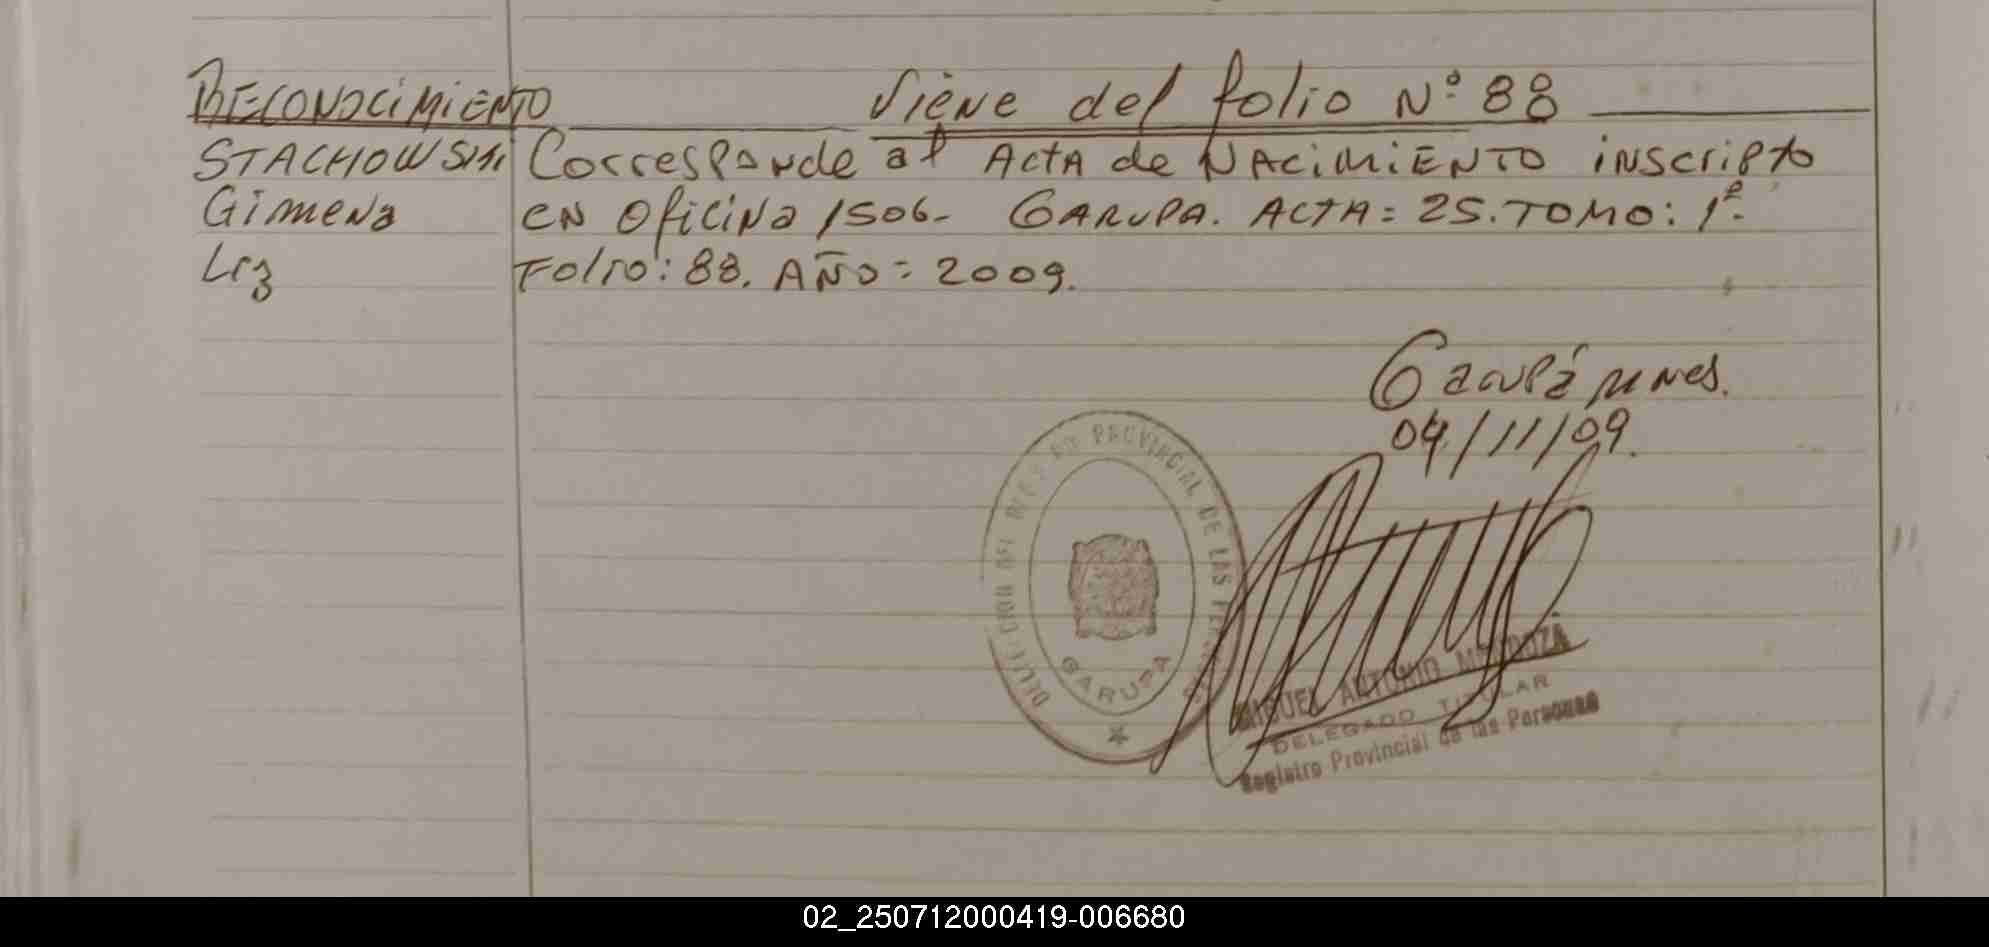 RECONOCIMIENTO Viene del folio Nº 88
STACHOWSKI Corresponde al Acta de NACIMIENTO inscripto
Gimena en Oficina 1506- GARUPA. ACTA: 25. TOMO: 1º.
Liz Folio: 88. AÑO: 2009.
Garupá Mnes.
04/11/09.
PROVINCIAL DE LAS
GARUPA
MIGUEL ANTONIO MENDOZA
DELEGADO TITULAR
Registro Provincial de las Personas
02_250712000419-006680